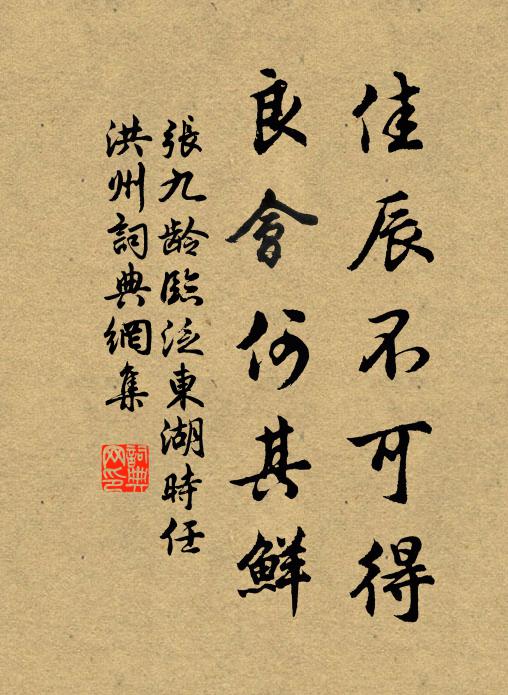 佳辰不可得
良會何其鮮
張九龄臨泛東湖時任
洪州詞典網集
詞典
网印